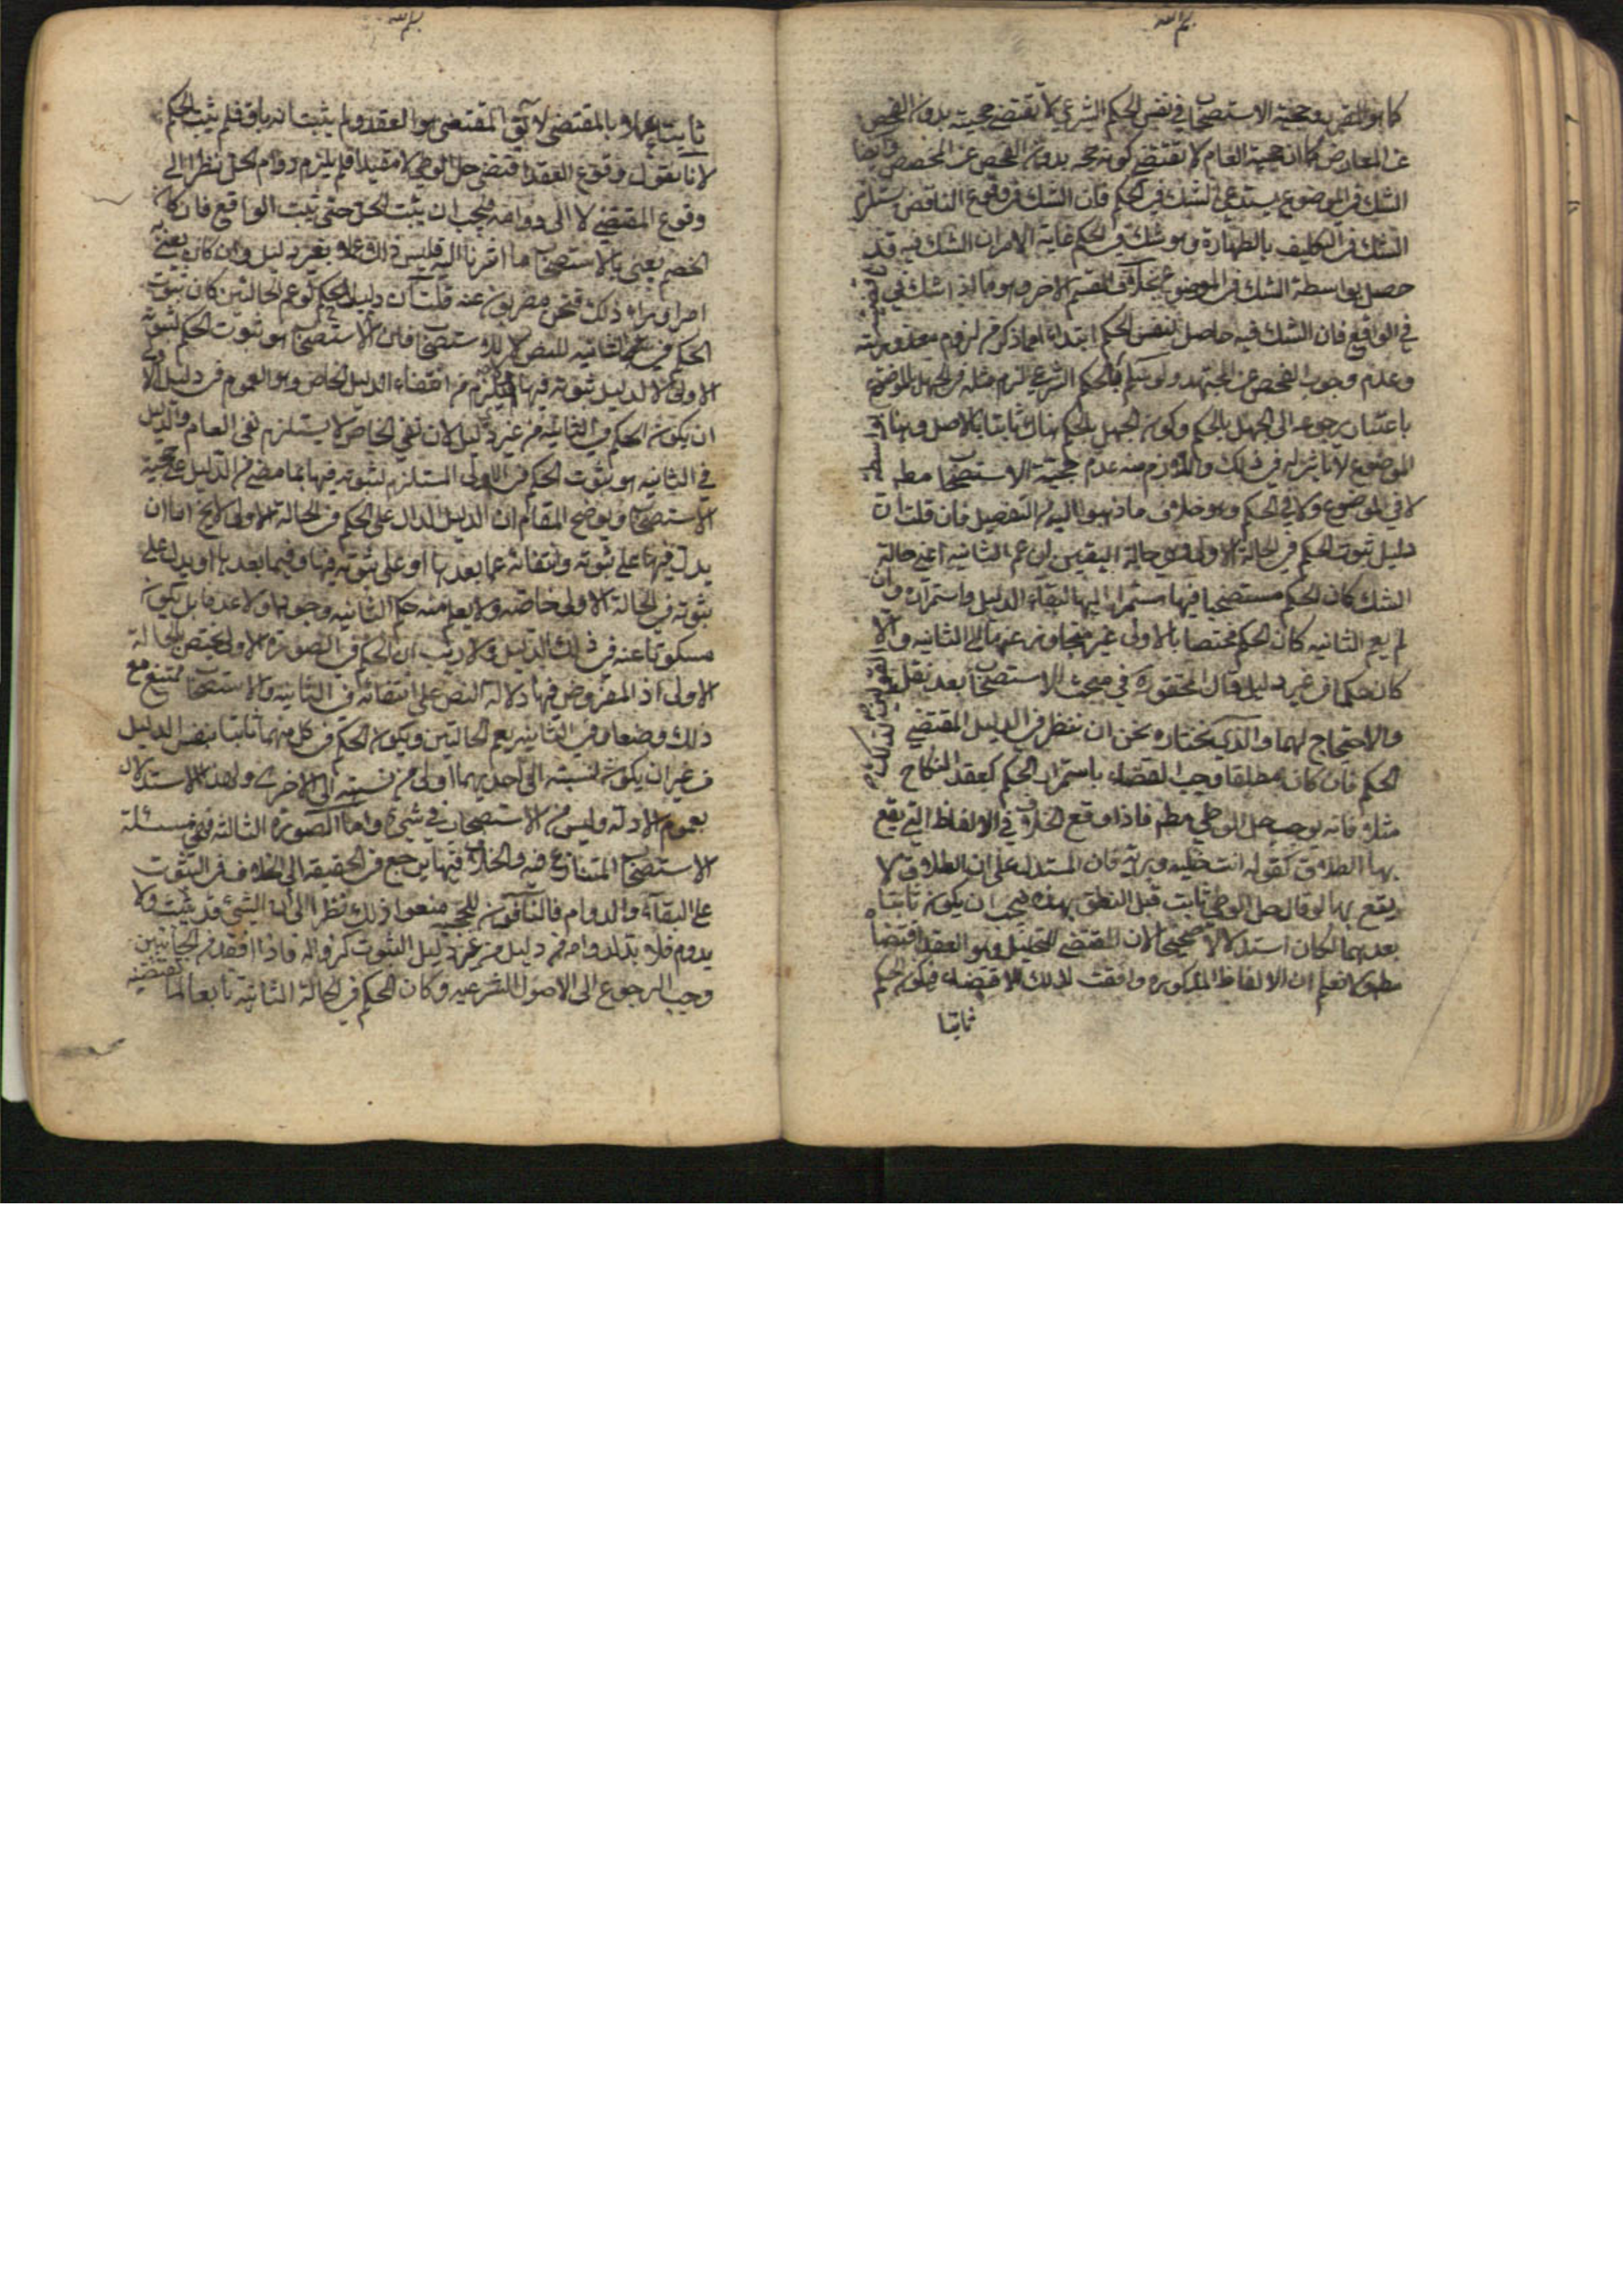 بسم الله
كما هو المقرر وحجية الاستصحاب في نفس الحكم الشرعي لا تقتضي حجيته بدون الفحص
عن المعارض كما ان حجية العام لا تقتضي كونه حجه بدون الفحص عن المخصص وايضا
الشك في الموضوع يستدعي الشك في الحكم فان الشك في وقوع الناقض يستلزم
الشك في التكليف بالطهارة وهو شك في الحكم غاية الامر ان الشك فيه قد
حصل بواسطة الشك في الموضوع بخلاف القسم الاخر وهو ما اذا شك في
في الواقع فان الشك فيه حاصل لنفس الحكم ابتداء لما ذكر من لزوم معذوريته
وعدم وجوب الفحص عن المجتهد ولو سلم فالحكم الشرعي لزم مثله في الجهل بالموضوع
باعتبار رجوعه الى الجهل بالحكم وكون الجهل بالحكم هناك ثابتا بالاصل وهنا بواسطة
الموضوع لا تأثير له في ذلك واللازم منه عدم حجية الاستصحاب مطلقا
لا في الموضوع ولا في الحكم وهو خلاف ما ذهبوا اليه من التفصيل فان قلت ان
دليل ثبوت الحكم في الحالة الاولى وهي حالة اليقين ان عم الثانيه اعني حالة
الشك كان الحكم مستصحبا فيها مستمرا اليها لبقاء الدليل واستمراره وان
لم يعم الثانيه كان الحكم مختصا بالاولى غير متجاوز عنها الى الثانيه والا
كان حكما من غير دليل قال المحقق ره في مبحث الاستصحاب بعد نقل القولين
والاحتجاج لهما والذي نختاره نحن ان ننظر في الدليل المقتضي لذلك
الحكم فان كان مطلقا وجب القضاء باستمرار الحكم كعقد النكاح
مثلا فانه يوجب حل الوطي مطم فاذا وقع الخلاف في الالفاظ التي يقع
بها الطلاق كقوله انت خليه وبريه فان المستدل على ان الطلاق لا
يقع بها لو قال حل الوطي ثابت قبل النطق بهذه فيجب ان يكون ثابتا
بعدها لكان استدلالا صحيحا لان المقتضي للتحليل وهو العقد اقتضاه
مطم ولا نعلم ان الالفاظ المذكوره رافعت لذلك الاقتضاء فيكون الحكم
ثابتا
بسم الله
ثابتا عملا بالمقتضي لا يق المقتضي هو العقد ولم يثبت انه باق فلم يثبت الحكم
لانا نقول وقوع العقد اقتضى حل الوطي لا مقيدا فلم يلزم دوام الحل نظرا الى
وقوع المقتضي لا الى دوامه فيجب ان يثبت الحل حتى يثبت الواقع فان كان
الخصم يعني بالاستصحاب ما اشرنا اليه فليس ذلك عملا بغير دليل وان كان يعني به
امرا وراء ذلك فنحن مضربون عنه قلت ان دليل الحكم لو عم الحالتين كان ثبوت
الحكم في الثانيه للنص لا للاستصحاب فان الاستصحاب هو ثبوت الحكم لثبوته في
الاولى لا لدليل ثبوته فيها ولا يلزم من انتفاء الدليل الخاص وهو العموم في دليل الاولى
ان يكون الحكم في الثانيه من غير دليل لان نفي الخاص لا يستلزم نفي العام والدليل
في الثانيه هو ثبوت الحكم في الاولى المستلزم لثبوته فيها بما مضى من الدليل على حجية
الاستصحاب ويوضح المقام ان الدليل الدال على الحكم في الحالة الاولى لايخ اما ان
يدل فيها على ثبوته وانتفائه عما بعدها او على ثبوته فيها وفيما بعدها او يدل على
ثبوته في الحالة الاولى خاصه ولا يعلم منه حكم الثانيه وجودا ولا عدما بل يكون
مسكوتا عنه في ذلك الدليل ولا ريب ان الحكم في الصورة الاولى يختص بالحالة
الاولى اذ المفروض فيها دلالة النص على انتفائه في الثانيه والاستصحاب ممتنع مع
ذلك وضعا وفي الثانيه يعم الحالتين ويكون الحكم في كل منهما ثابتا بنفس الدليل
من غير ان يكون نسبته الى احديهما اولى من نسبته الى الاخرى وهذا الاستدلال
بعموم الادلة وليس من الاستصحاب في شيء واما الصورة الثالثه فهي مسئلة
الاستصحاب المتنازع فيه والخلاف فيها يرجع في الحقيقه الى الخلاف في الثبوت
على البقاء والدوام فالنافون للحجيه منعوا ذلك نظرا الى ان الشيء قد يثبت ولا
يدوم فلا بد لدوامه من دليل من غير دليل الثبوت كزواله فاذا افقد من الجانبين
وجب الرجوع الى الاصول الشرعيه وكان الحكم في الحالة الثانيه تابعا لما تقتضيه